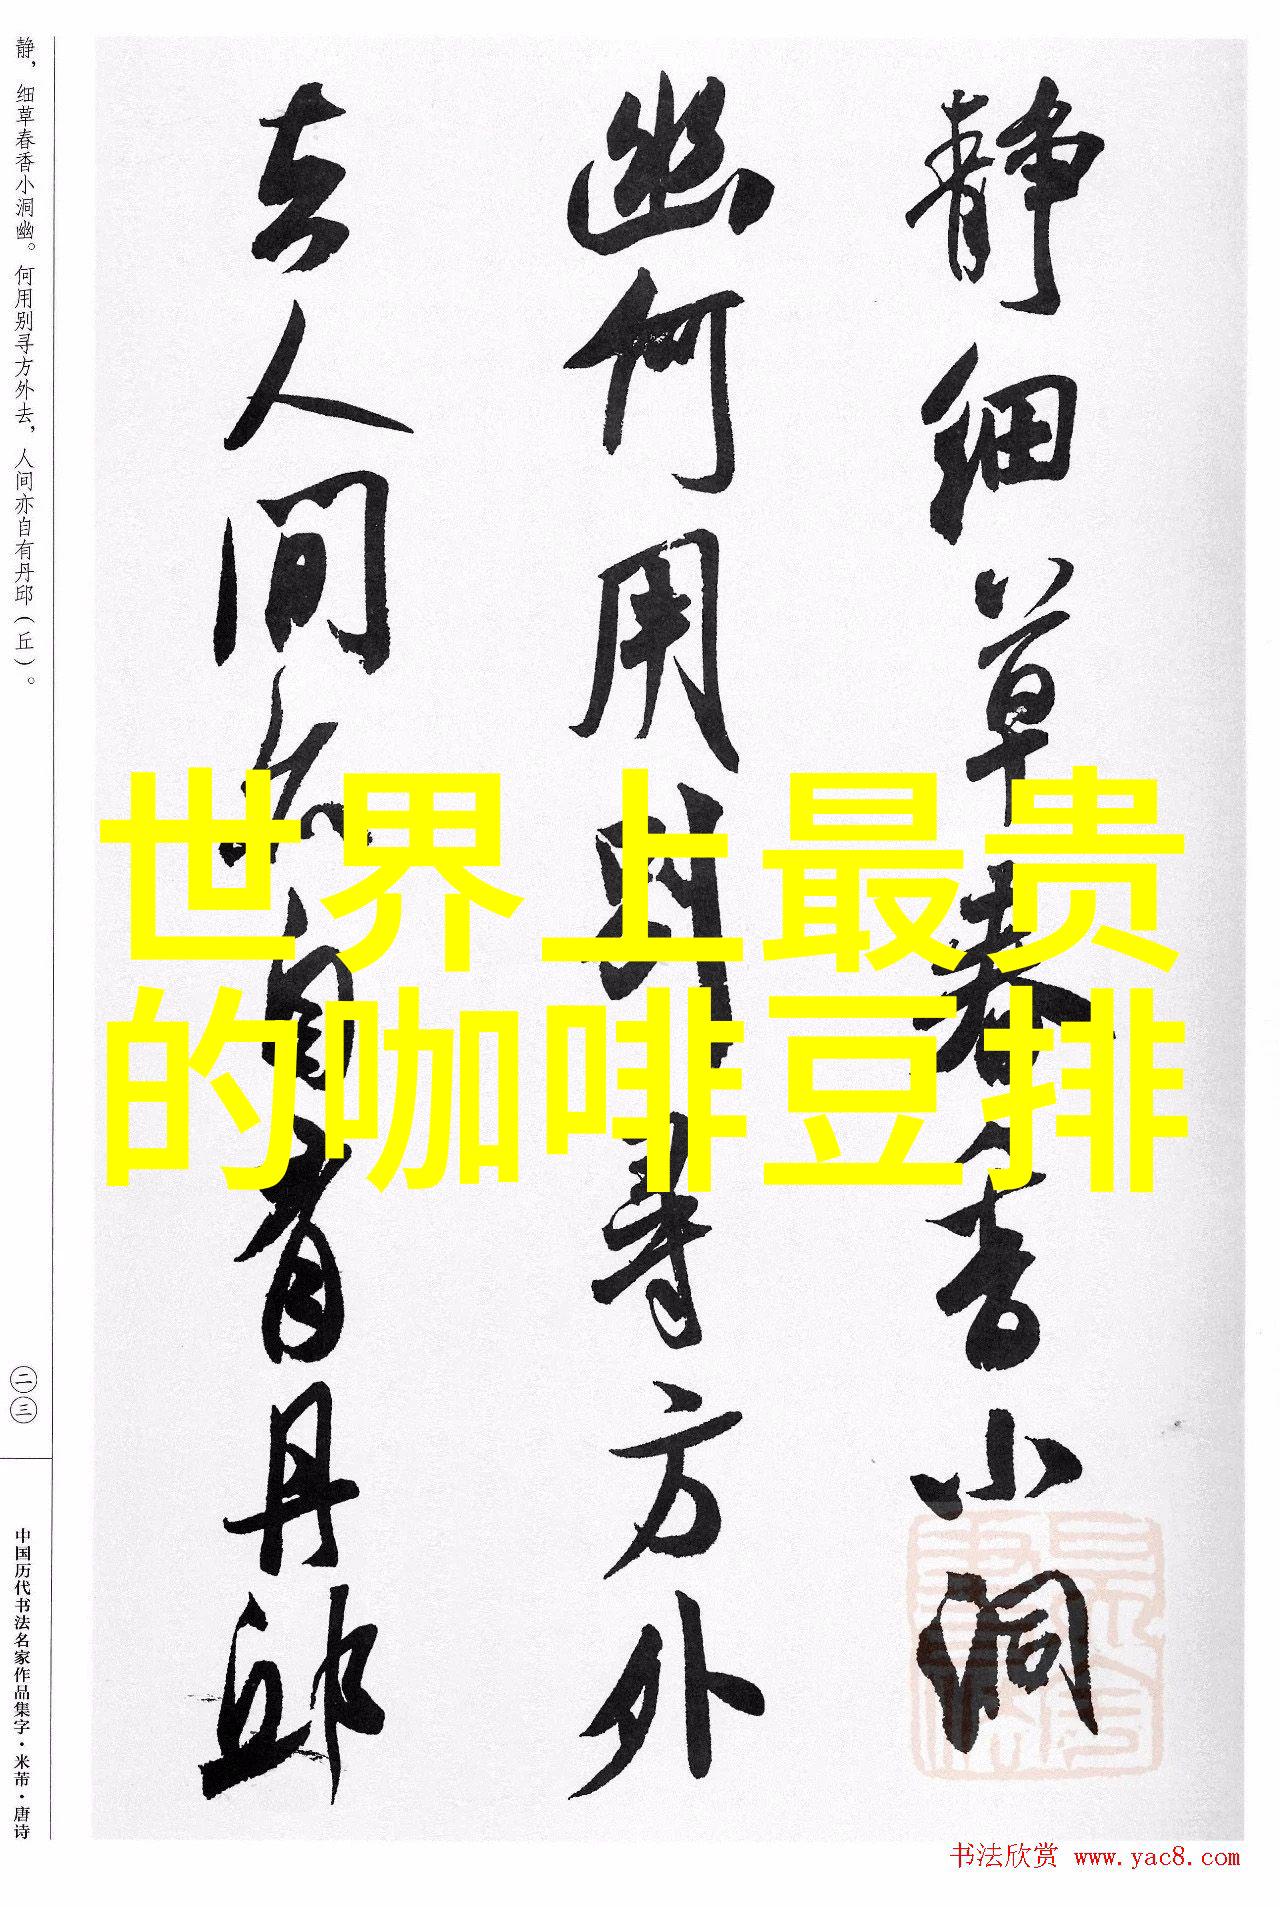 静細草春香小洞
幽何用別尋方外
去人間亦自有丹邱
世界上最贵
的咖啡豆排
静，细草春香小洞幽。何用别寻方外去，人间亦自有丹邱（丘）。
二三
中国历代书法名家作品集字·米芾·唐诗
书法欣赏 www.yac8.com